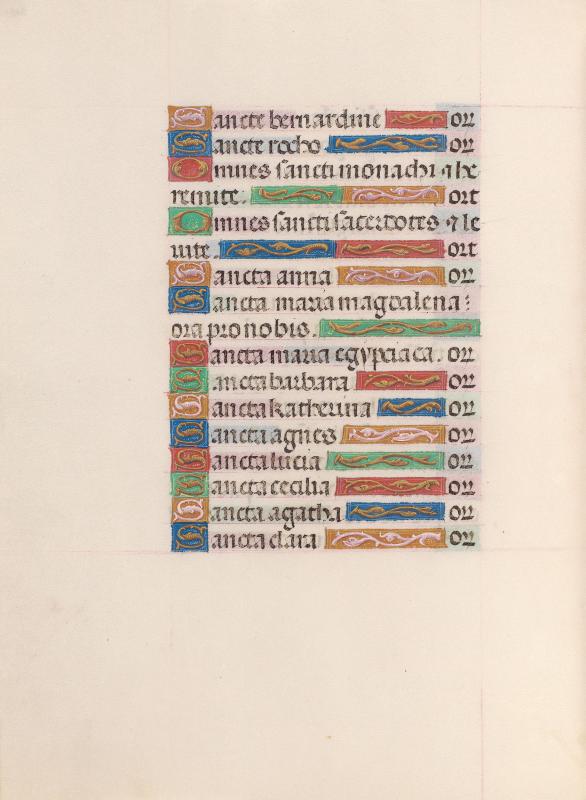 Sancte bernardine oꝛ
Sancte rocho oꝛ
Omnes sancti monachi ⁊ he
remite. ort
Omnes sancti sacerdotes ⁊ le
uite. ort
Sancta anna oꝛ
Sancta maria magdalena:
ora pro nobis.
Sancta maria egypciaca. oꝛ
Sancta barbara oꝛ
Sancta katherina oꝛ
Sancta agnes oꝛ
Sancta lucia oꝛ
Sancta cecilia oꝛ
Sancta agatha oꝛ
Sancta clara oꝛ